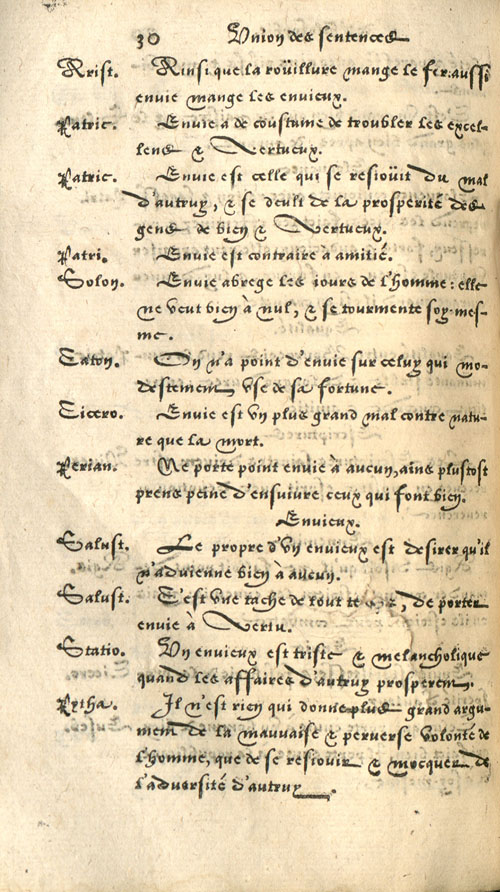 30 Vnion des sentences
Arist. Ainsi que la roüillure mange le fer: aussi
envie mange les envieux.
Patric. Envie a de coustume de troubler les excel-
lens & Vertueux.
Patric. Envie est celle qui se resioüit du mal
d'autruy, & se deult de la prosperité des
gens de bien & Vertueux.
Patri. Envie est contraire à amitié.
Solon. Envie abrege les iours de l'homme: elle
ne veut bien à nul, & se tourmente soy-mes-
me.
Caton. On n'a point d'envie sur celuy qui mo-
destement vse de sa fortune.
Cicero. Envie est vn plus grand mal contre natu-
re que la mort.
Perian. Ne porte point envie à aucun, ains plustost
prens peine d'ensuiure ceux qui font bien.
Envieux.
Salust. Le propre d'vn envieux est desirer qu'il
n'aduienne bien à aucun.
Salust. C'est vne tache de tout te , de porter
envie à Vertu.
Statio. Vn envieux est triste & melancholique
quand les affaires d'autruy prosperent.
Pytha. Il n'est rien qui donne plus grand argu-
ment de la mauvaise & perverse volonté de
l'homme, que de se resiouir & mocquer de
l'aduersité d'autruy